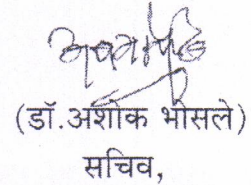 (डॉ.अशोक भोसले)
सचिव,